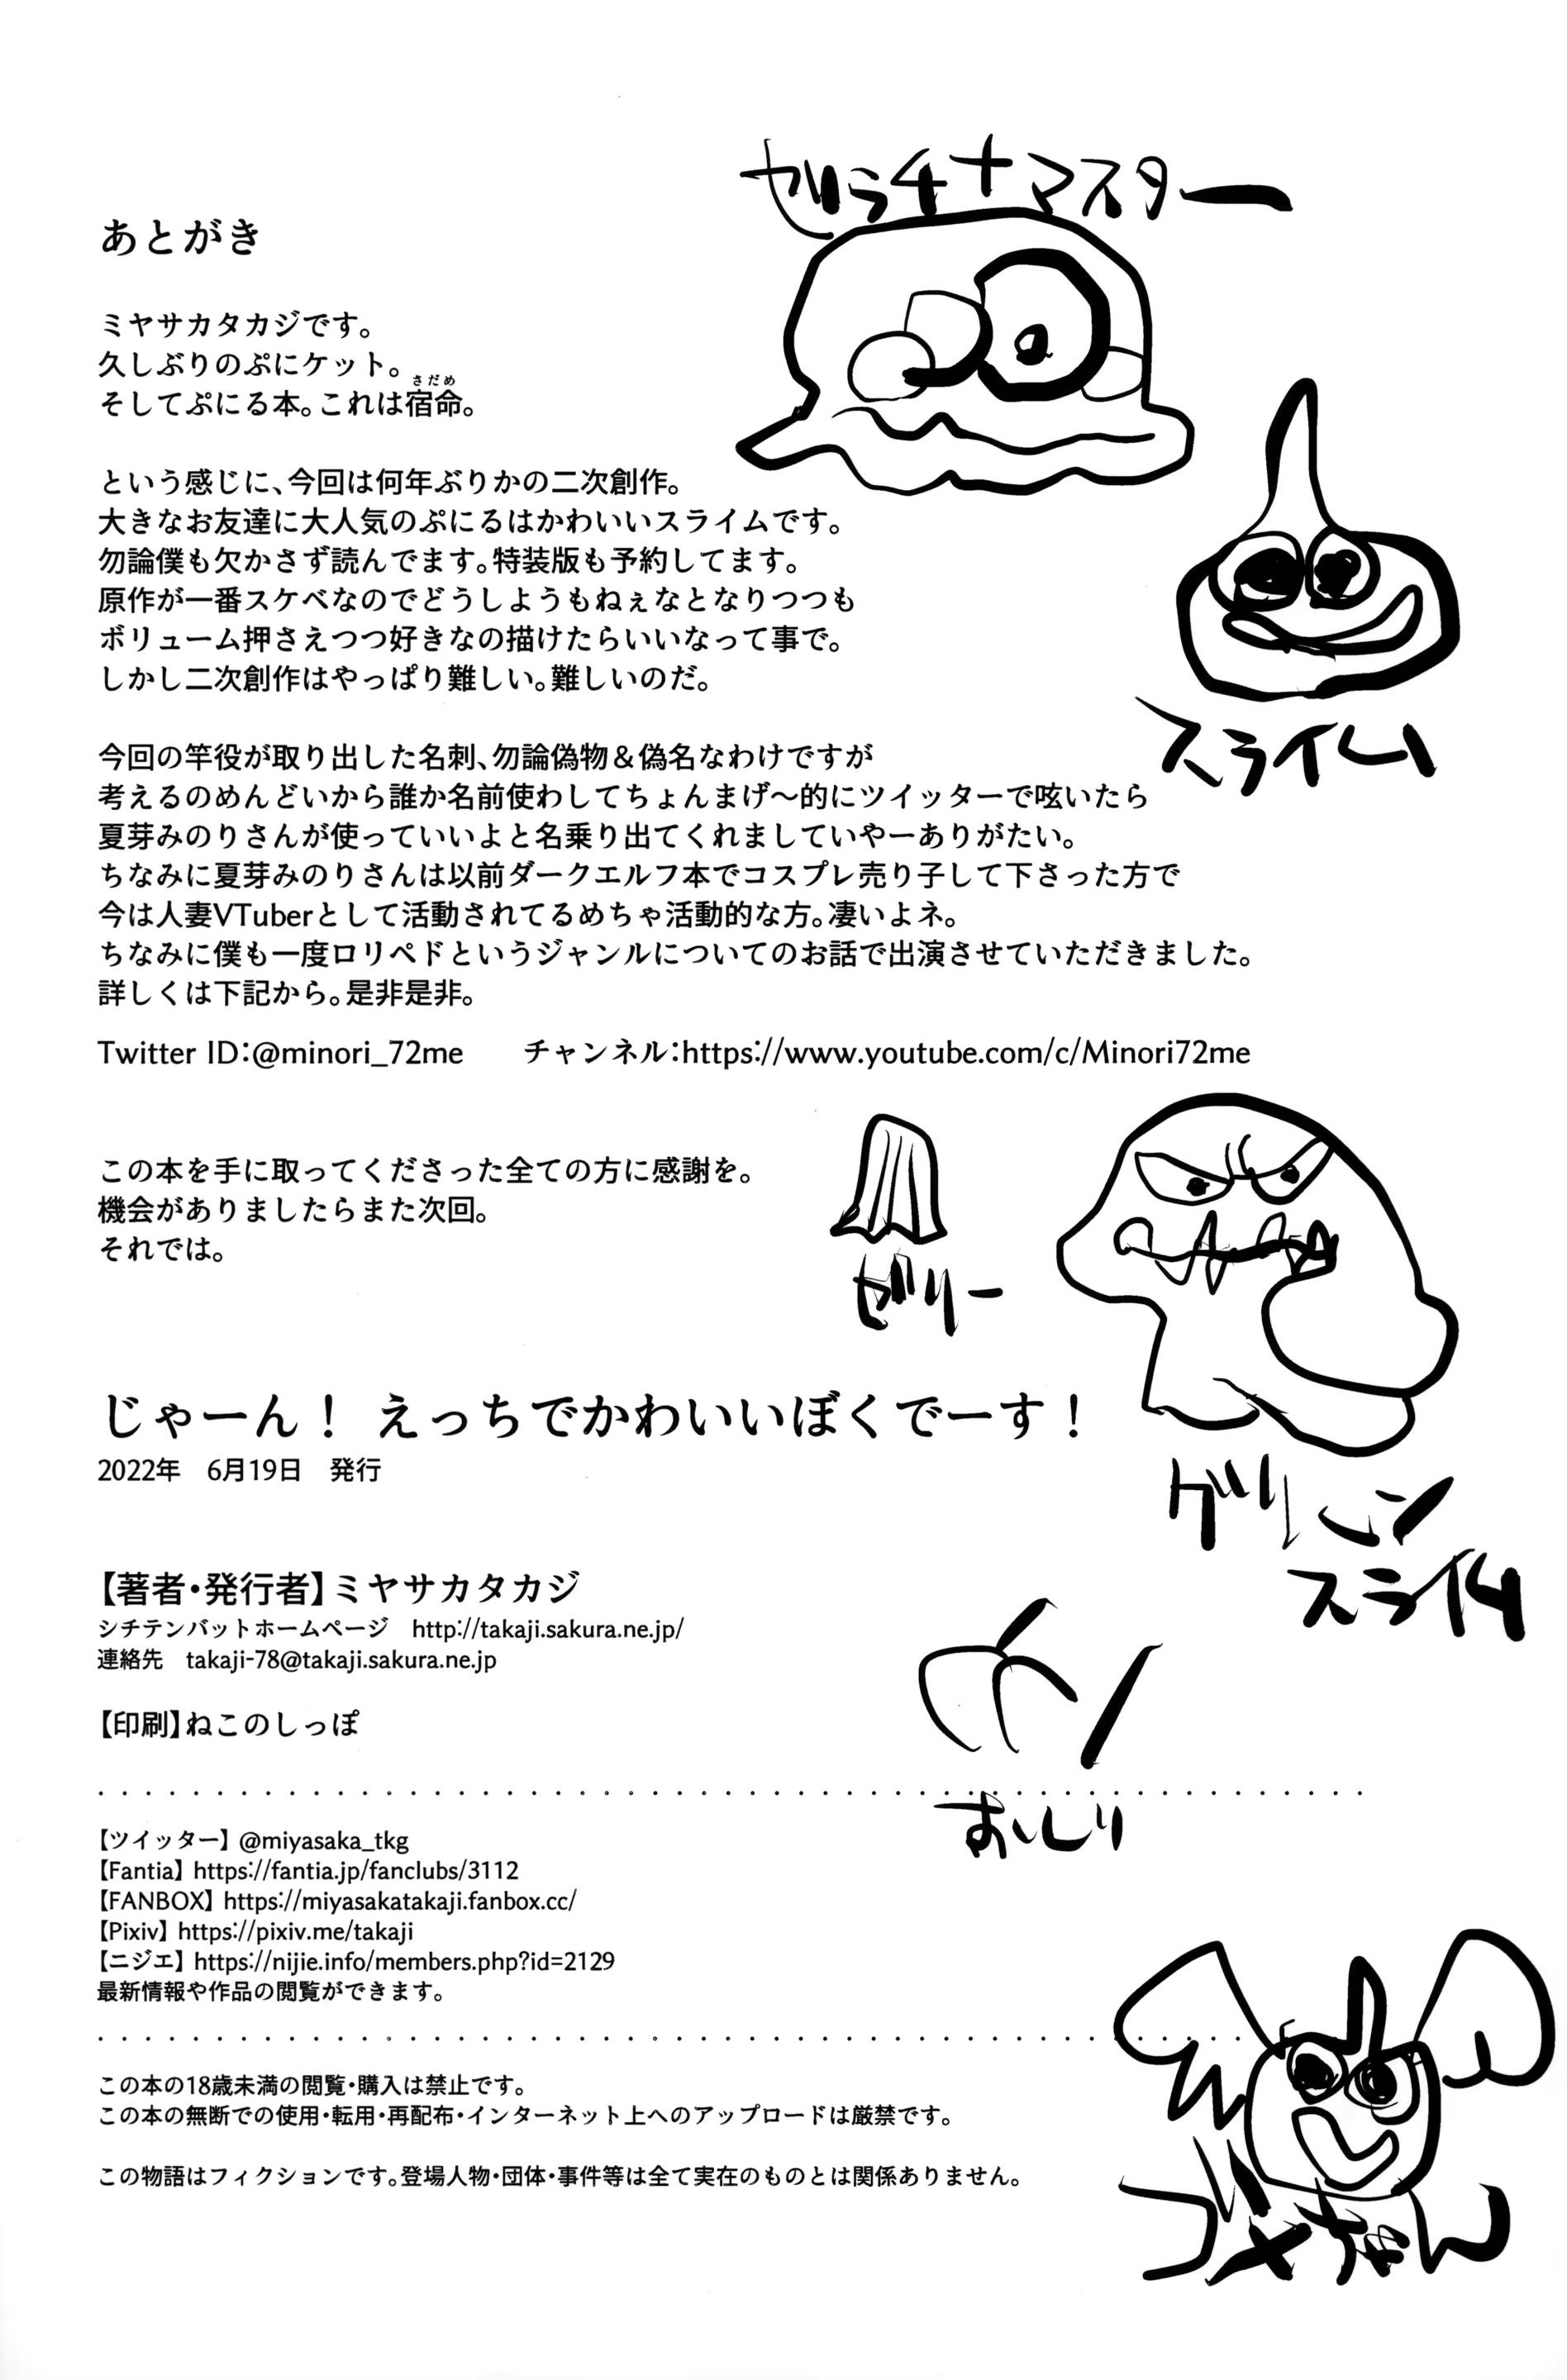 ゼラチナマスター
あとがき
ミヤサカタカジです。
久しぶりのぷにケット。
さだめ
そしてぷにる本。これは宿命。
という感じに、今回は何年ぶりかの二次創作。
大きなお友達に大人気のぷにるはかわいいスライムです。
勿論僕も欠かさず読んでます。特装版も予約してます。
原作が一番スケベなのでどうしようもねぇなとなりつつも
ボリューム押さえつつ好きなの描けたらいいなって事で。
しかし二次創作はやっぱり難しい。難しいのだ。
スライム
今回の竿役が取り出した名刺、勿論偽物＆偽名なわけですが
考えるのめんどいから誰か名前使わしてちょんまげ～的にツイッターで呟いたら
夏芽みのりさんが使っていいよと名乗り出てくれましていやーありがたい。
ちなみに夏芽みのりさんは以前ダークエルフ本でコスプレ売り子して下さった方で
今は人妻VTuberとして活動されてるめちゃ活動的な方。凄いよネ。
ちなみに僕も一度ロリペドというジャンルについてのお話で出演させていただきました。
詳しくは下記から。是非是非。
Twitter ID：@minori_72me　　チャンネル：https://www.youtube.com/c/Minori72me
この本を手に取ってくださった全ての方に感謝を。
機会がありましたらまた次回。
それでは。
ゼリー
じゃーん！ えっちでかわいいぼくでーす！
2022年　6月19日　発行
グリーン
スライム
【著者・発行者】ミヤサカタカジ
シチテンバットホームページ　http://takaji.sakura.ne.jp/
連絡先　takaji-78@takaji.sakura.ne.jp
【印刷】ねこのしっぽ
おしり
【ツイッター】@miyasaka_tkg
【Fantia】https://fantia.jp/fanclubs/3112
【FANBOX】https://miyasakatakaji.fanbox.cc/
【Pixiv】https://pixiv.me/takaji
【ニジエ】https://nijie.info/members.php?id=2129
最新情報や作品の閲覧ができます。
この本の18歳未満の閲覧・購入は禁止です。
この本の無断での使用・転用・再配布・インターネット上へのアップロードは厳禁です。
この物語はフィクションです。登場人物・団体・事件等は全て実在のものとは関係ありません。
ゴメちゃん